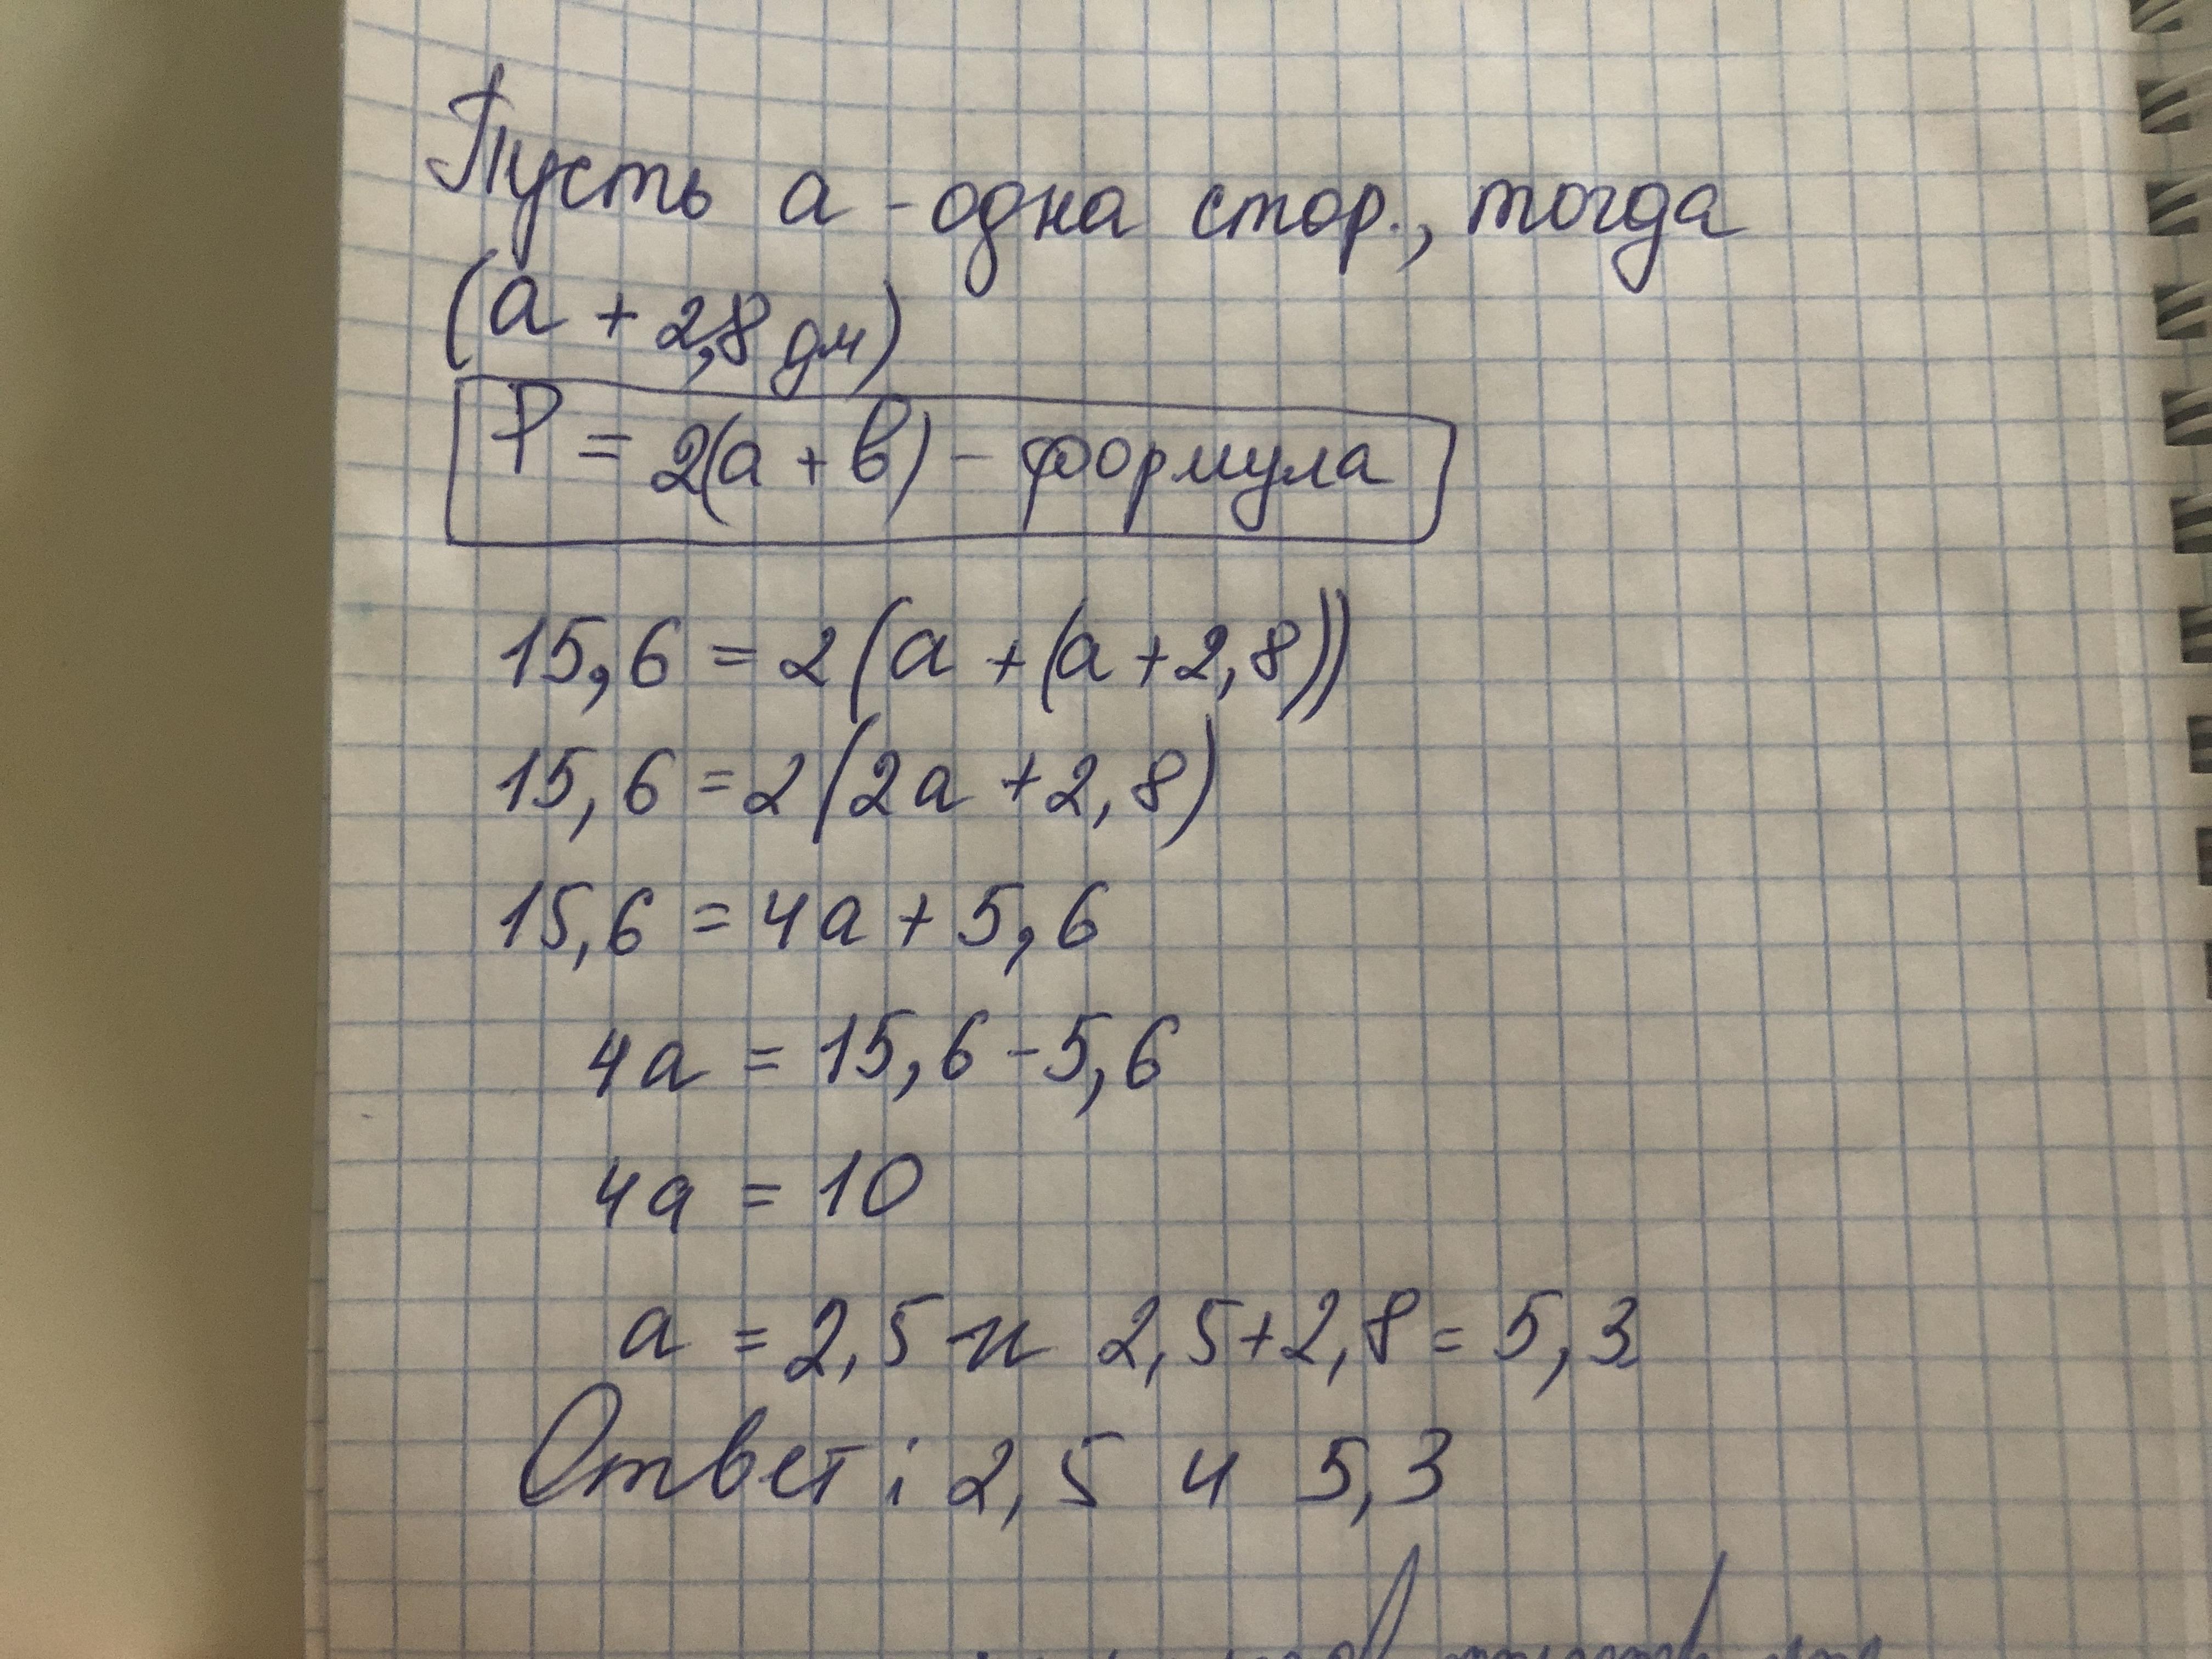 Пусть а - одна стор., тогда
(а + 2,8 дм)
P = 2(а + в) - формула
15,6 = 2(а + (а + 2,8))
15,6 = 2(2а + 2,8)
15,6 = 4а + 5,6
4а = 15,6 - 5,6
4а = 10
а = 2,5 и 2,5 + 2,8 = 5,3
Ответ: 2,5 и 5,3